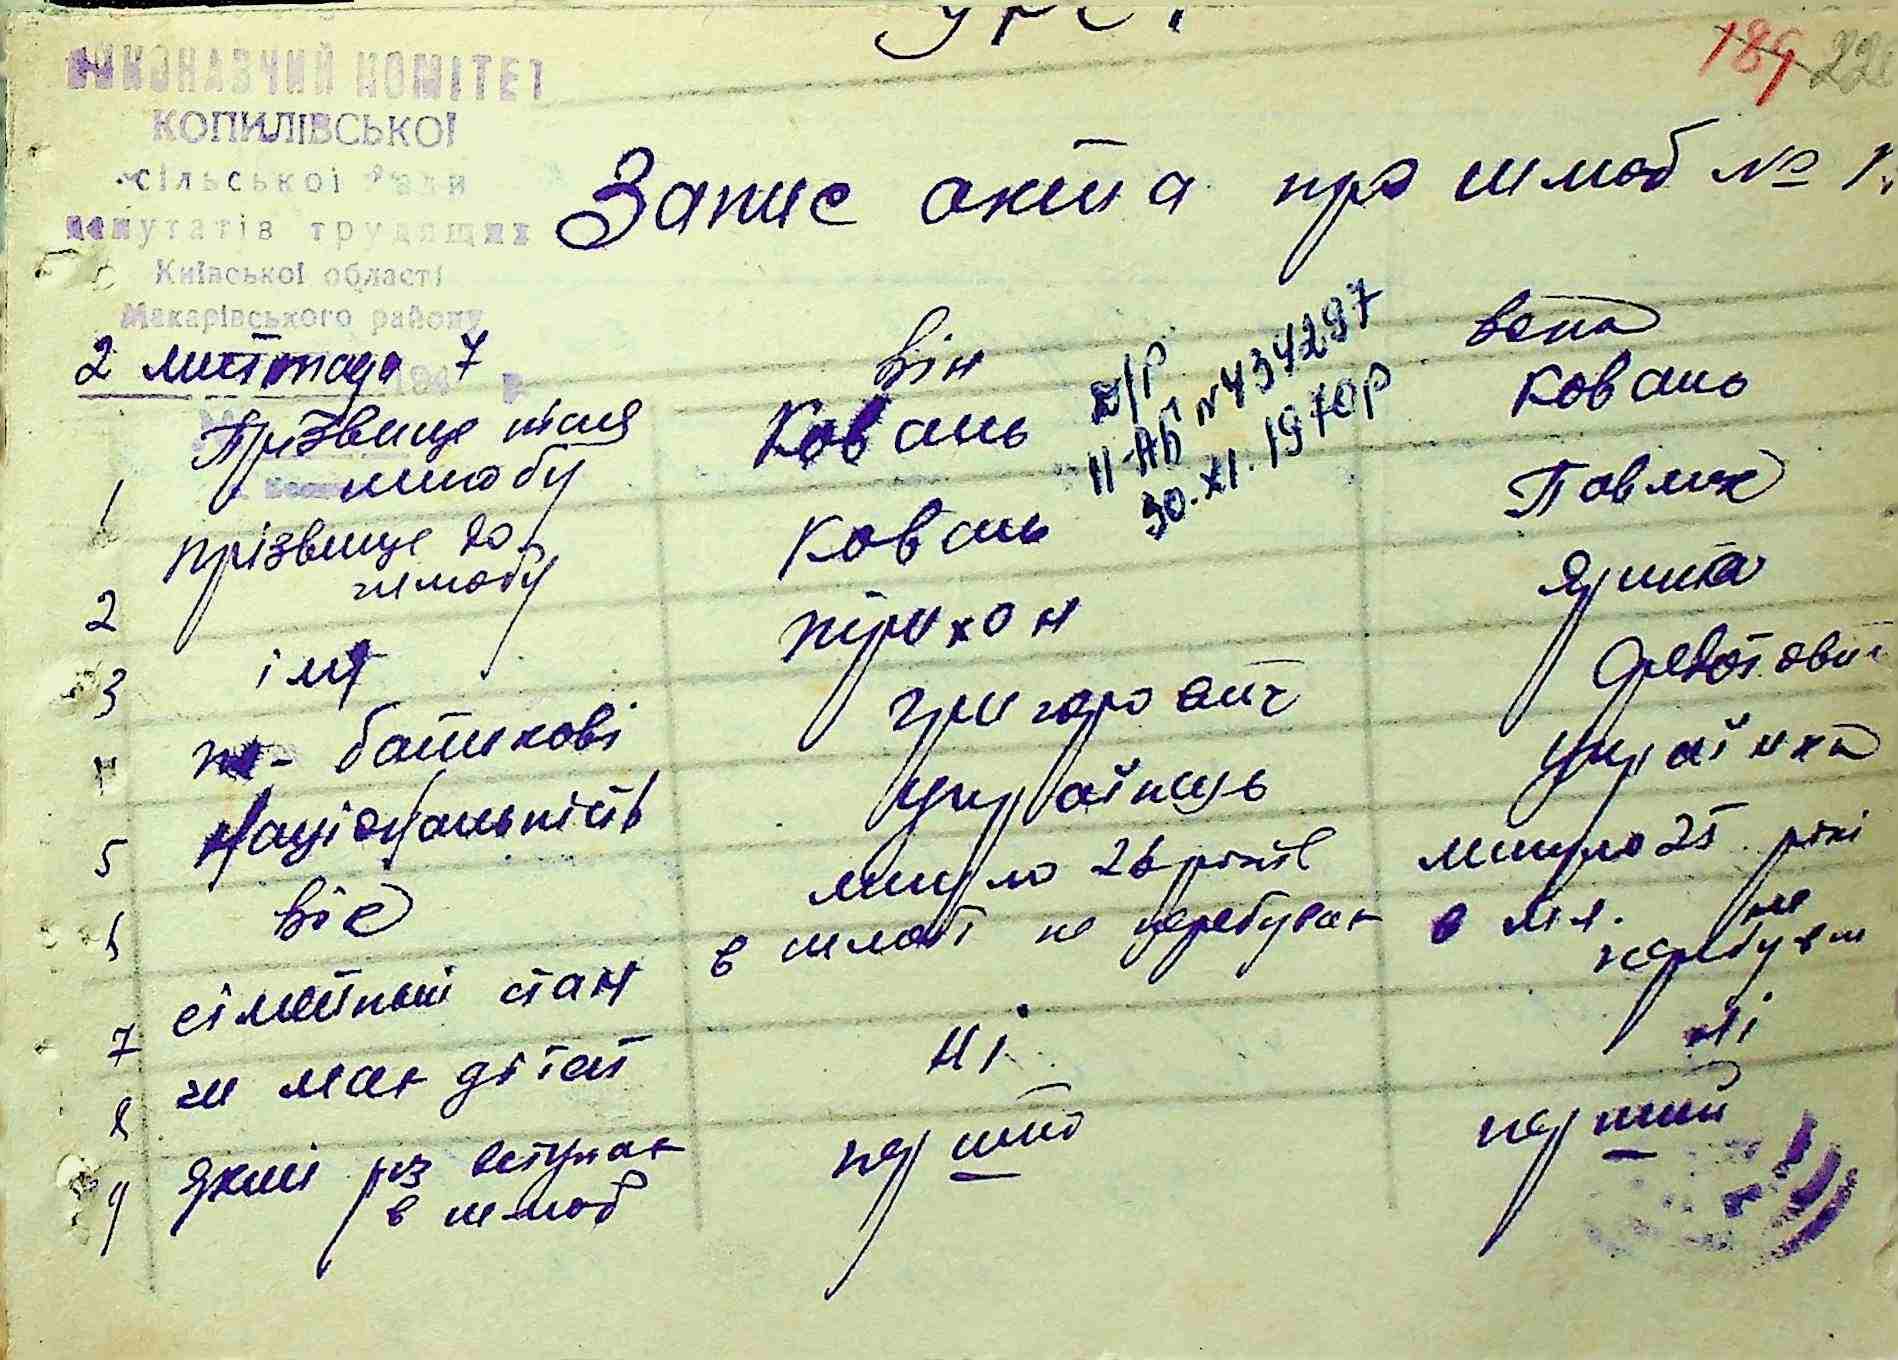 УРСР
189 22
ВИКОНАВЧИЙ КОМІТЕТ
КОПИЛІВСЬКОЇ
сільської Ради
депутатів трудящих
Київської області
Макарівського району
Запис акта про шлюб №
2 листопада 1947 р.
він вона
1 Прізвище після шлюбу Ковань Ковань
п/р
II-АБ №434297
30.XI.1970р
2 прізвище до шлюбу Ковань Павлюк
3 імя Трихон Ярина
4 по-батькові Григорович Федотовн
5 Національність українець українка
6 вік минуло 26 років минуло 25 рокі
7 сімейний стан в шлюбі не перебував в шл. не перебувала
8 чи має дітей ні ні
9 який раз вступає в шлюб перший перший